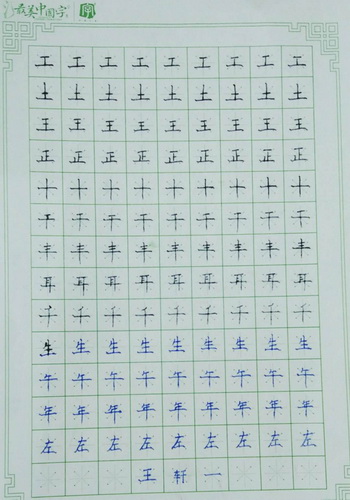 最美中国字
工工工工工工工工工
土土土土土土土土土
王王王王王王王王王
正正正正正正正正正
十十十十十十十十十
干干干干干干干干干
丰丰丰丰丰丰丰丰丰
耳耳耳耳耳耳耳耳耳
千千千千千千千千千
生生生生生生生生生
午午午午午午午午午
年年年年年年年年年
左左左左左左左左左
王轩一